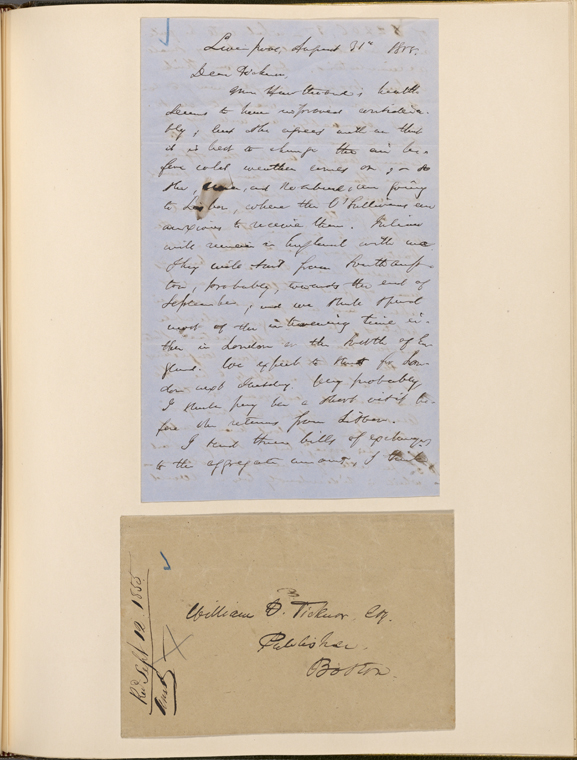 Liverpool, August 31st 1855.
Dear Ticknor,
Mrs Hawthorne's health
seems to have improved considera-
bly; but she agrees with me that
it is best to change the air be-
fore cold weather comes on; so
she, Una, and Rosebud, are going
to Lisbon, where the O'Sullivans are
anxious to receive them. Julian
will remain in England with me
They will start from Southamp-
ton, probably, towards the end of
September; and we shall spend
most of the intervening time ei-
ther in London or the South of En-
gland. We expect to start for Lon-
don next Tuesday. Very probably
I shall pay her a short visit be-
fore she returns from Lisbon.
I send three bills of exchange,
to the aggregate amount, I think
William D. Ticknor, Esq.
Publisher.
Boston.
Recd Sept 12. 1855